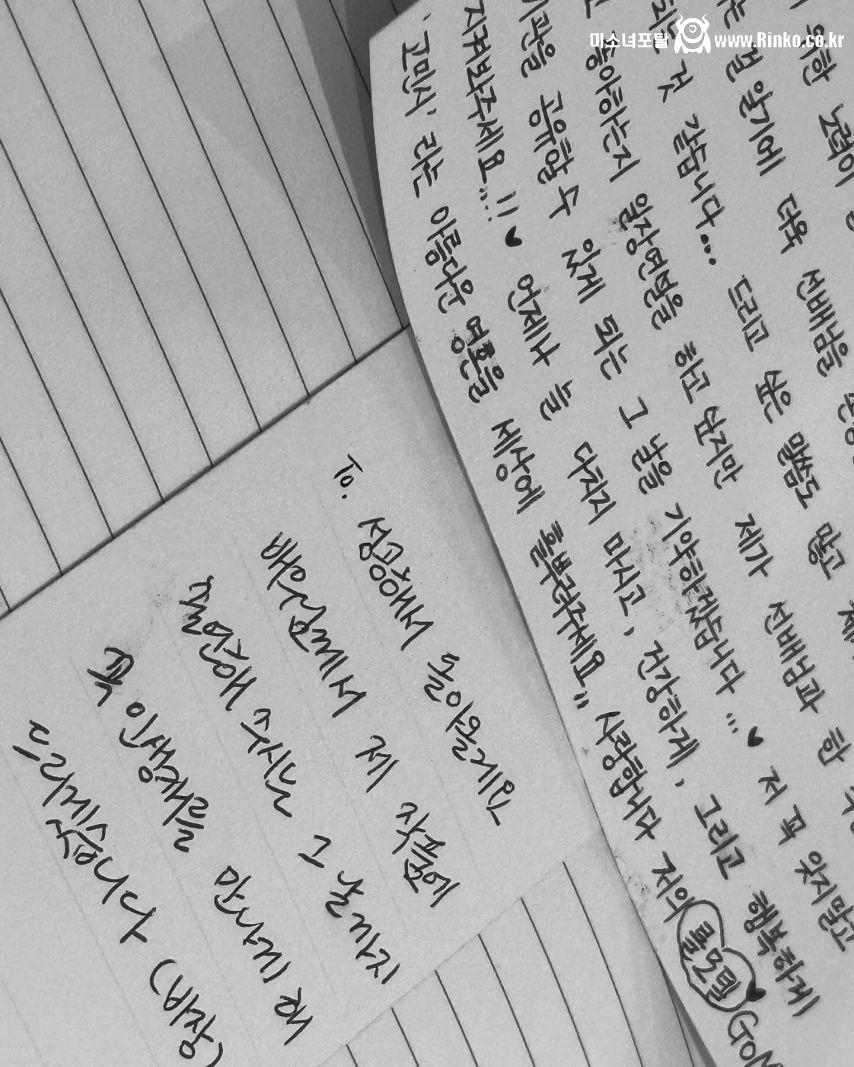 미소녀포탈 www.Rinko.co.kr
위한 노력이
는 걸 알기에 더욱 선배님을
것 같습니다... 드리고 싶은 말씀도 많고
좋아하는지 일장연설을 하고 싶지만 제가 선배님과 한
치관을 공유할 수 있게 되는 그 날을 기약하겠습니다...♥ 저 꼭 잊지말고
지켜봐주세요..!! ♥ 언제나 늘 다치지 마시고, 건강하게, 그리고 행복하게
'고민시' 라는 아름다운 영혼을 세상에 흩뿌려주세요.. 사랑합니다 저의 롤모델♥ GoM
To. 성공해서 돌아올게요
배우님께서 제 작품에
출연해 주시는 그 날까지
꼭 인생캐를 해
드리겠습니다